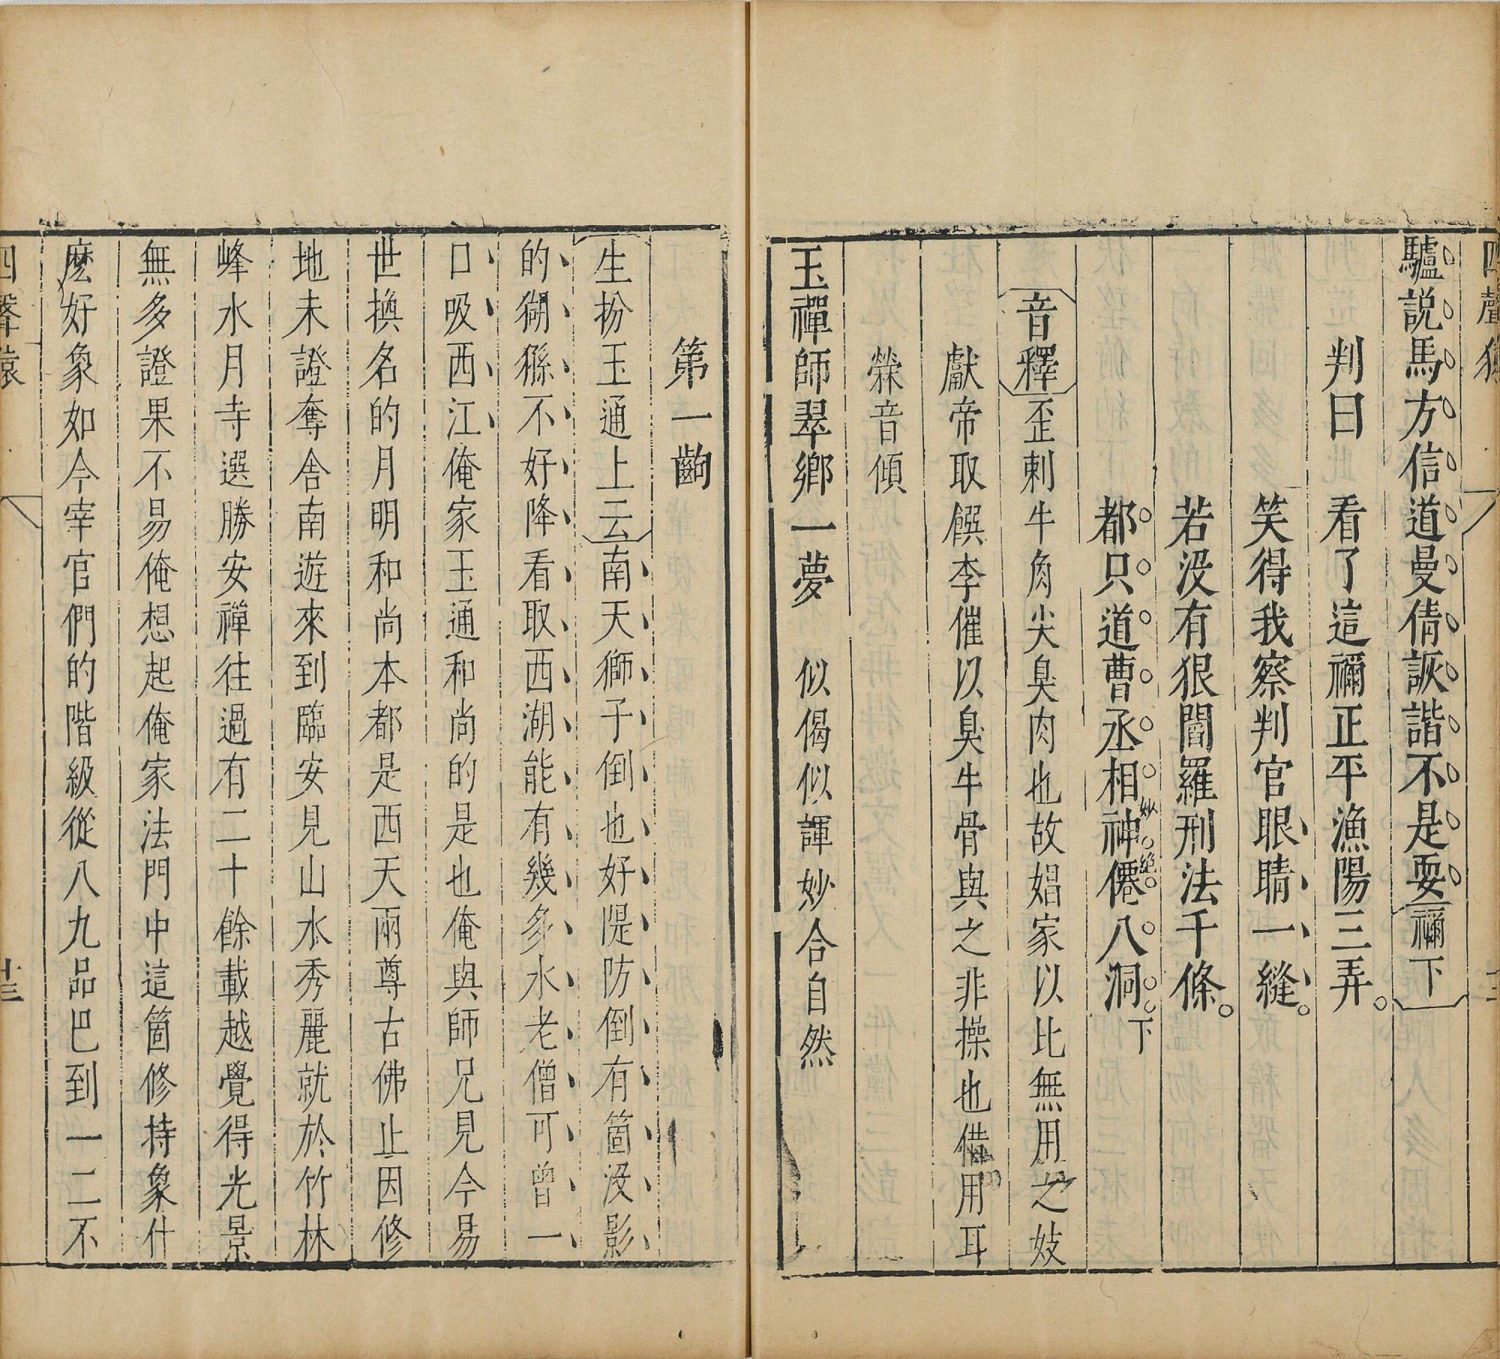 四聲猿
驢説馬方信道曼倩詼諧不是耍禰下
判曰　看了這禰正平漁陽三弄。
笑得我察判官眼睛一縫。
若没有狠閻羅刑法千條。
都只道曹丞相神僊八洞。下
妙絶
音釋 歪剌牛角尖臭肉也故娼家以比無用之妓
獻帝取饌李傕以臭牛骨與之非操也借用耳
檾音傾
玉禪師翠鄉一夢　似偈似諢妙合自然
第一齣
生扮玉通上云南天獅子倒也好隄防倒有箇没影
的猢猻不好降看取西湖能有幾多水老僧可曾一
口吸西江俺家玉通和尚的是也俺與師兄見今易
世換名的月明和尚本都是西天兩尊古佛止因修
地未證奪舍南遊來到臨安見山水秀麗就於竹林
峰水月寺選勝安禪往過有二十餘載越覺得光景
無多證果不易俺想起俺家法門中這箇修持象什
麽好象如今宰官們的階級從八九品巴到一二不
四聲猿
廿三